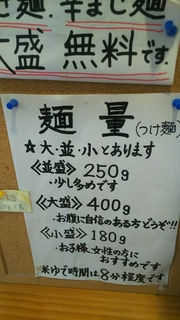 麺、辛まじ麺
大盛 無料です.
麺量(つけ麺)
☆大・並・小とあります
《並盛》250g
・少し多めです
《大盛》400g
・お腹に自信のある方どうぞ!!
《小盛》180g
・お子様、女性の方に
おすすめです
※ゆで時間は8分程度です